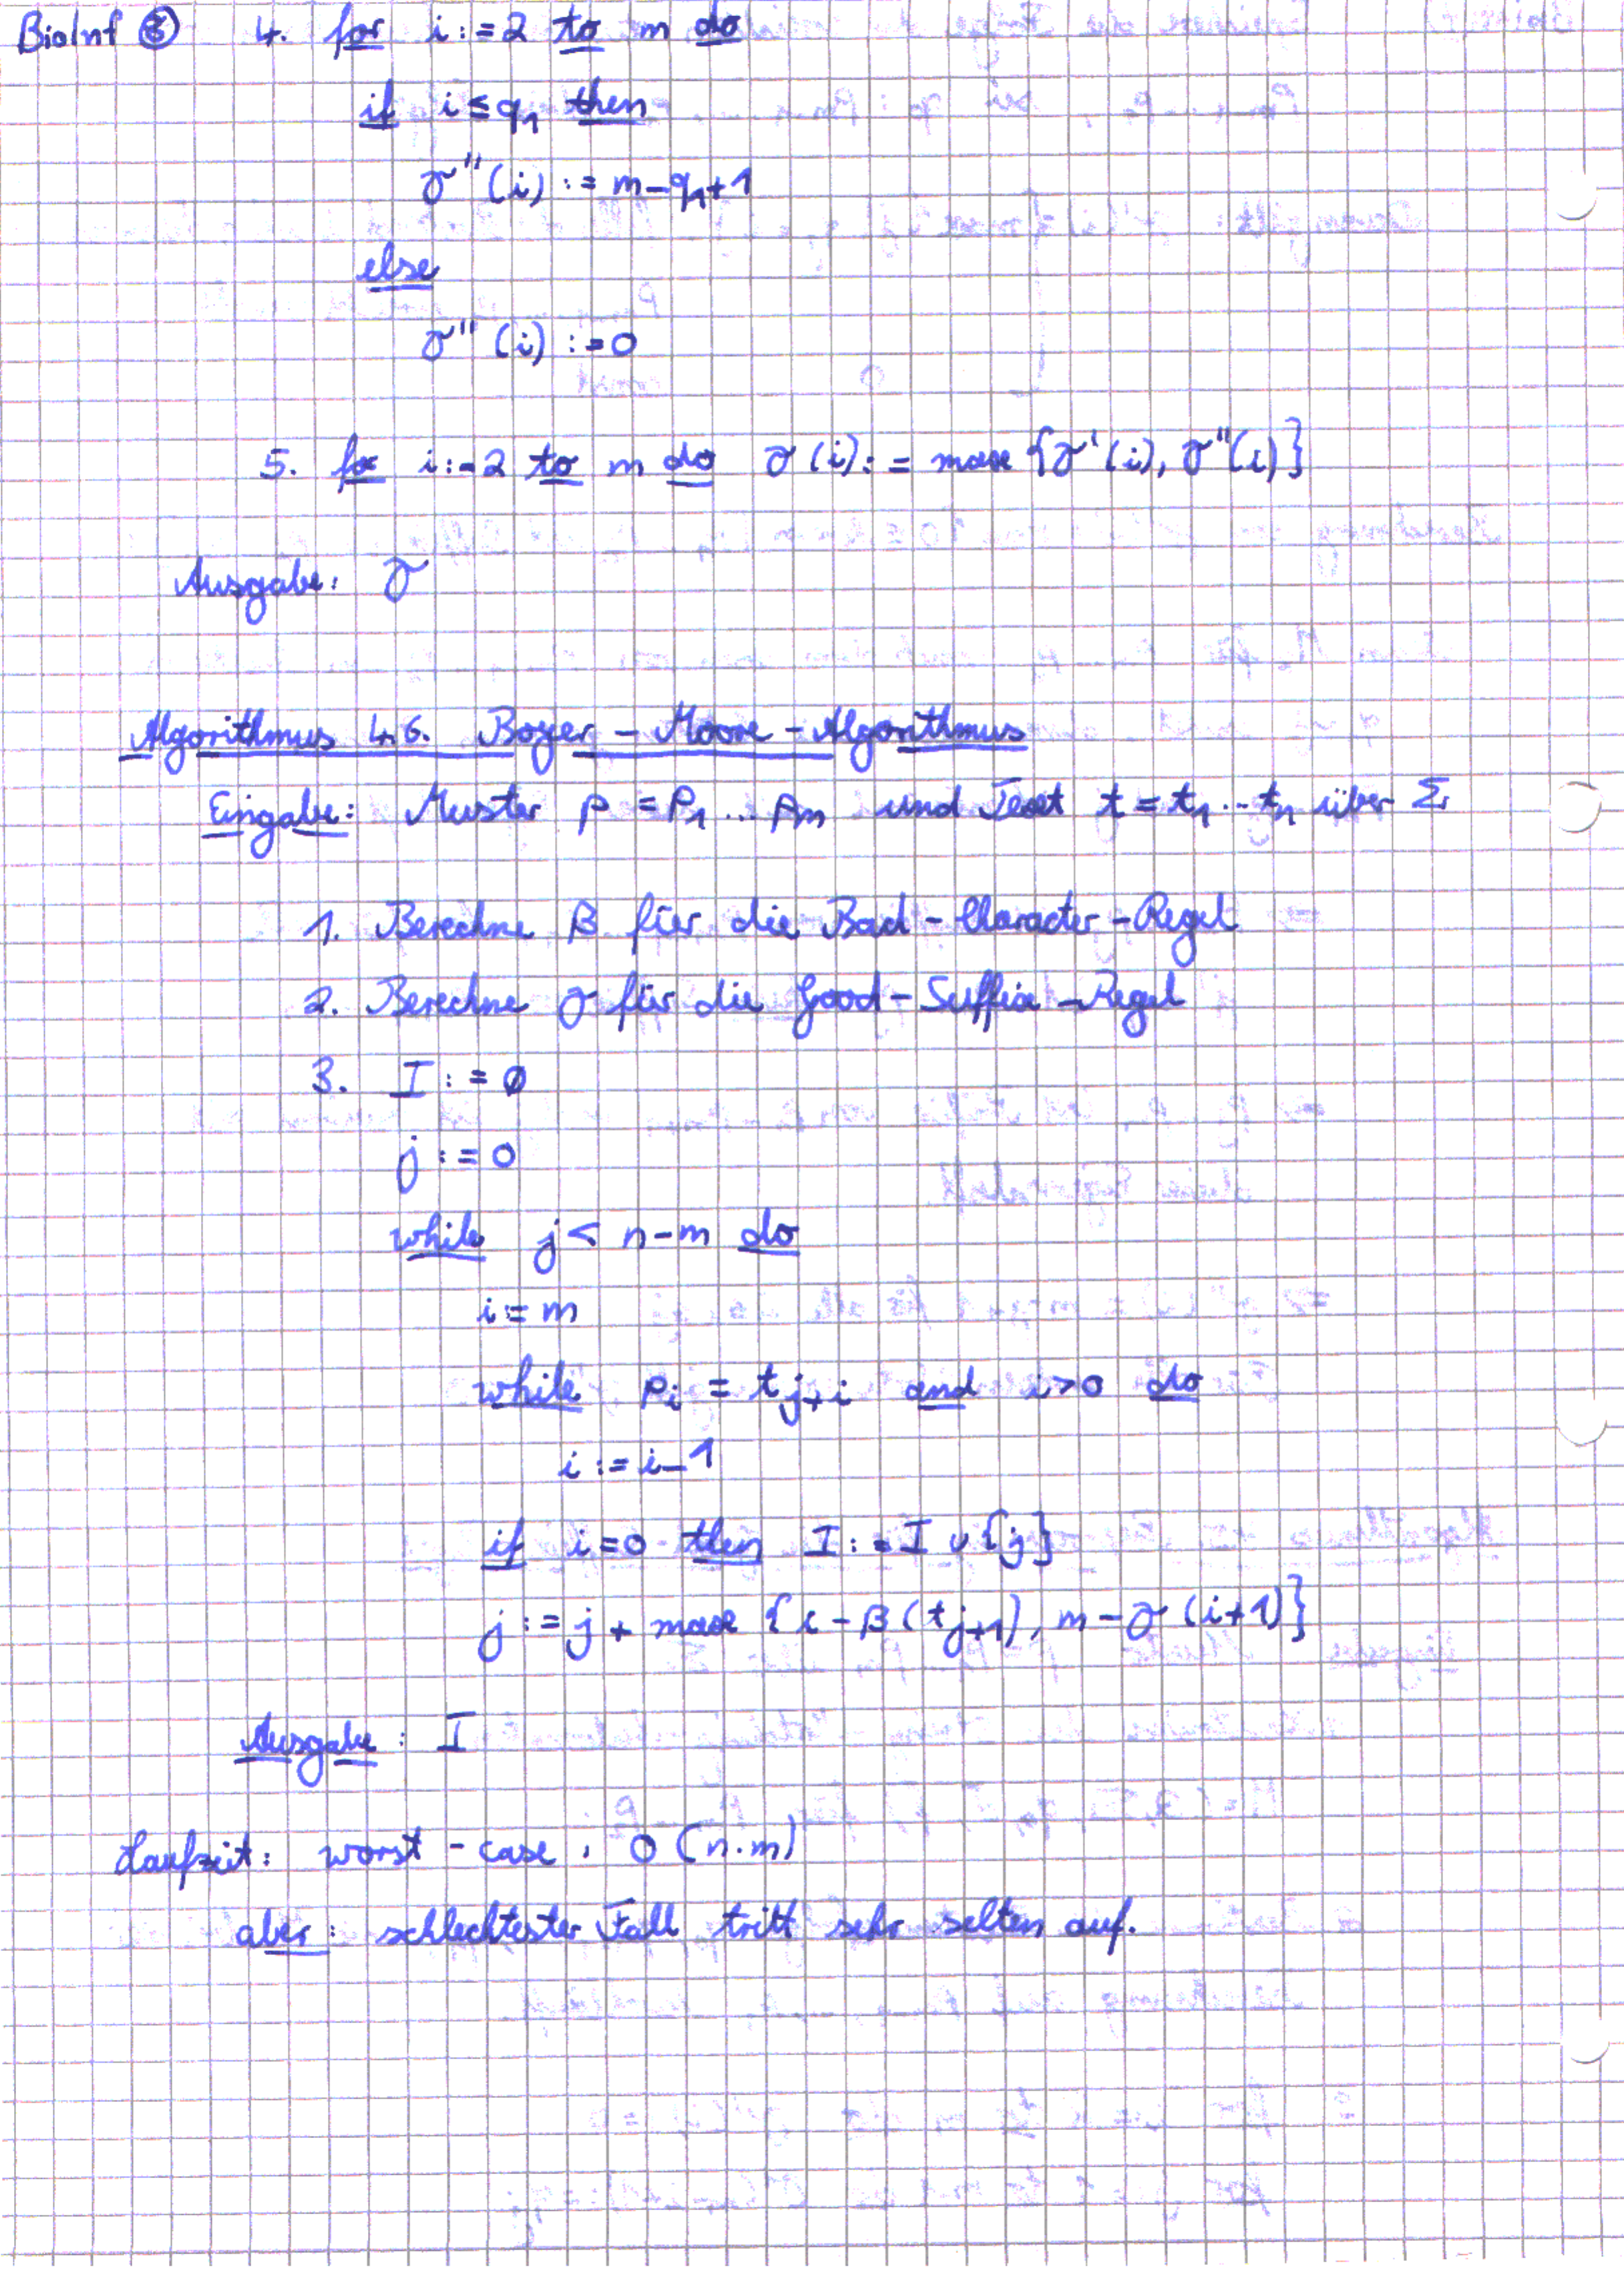 BioInf ⑧ 4. for i:=2 to m do
if i≤q₁ then
γ''(i) := m-q₁+1
else
γ''(i) :=0
5. for i:=2 to m do γ(i):= max {γ'(i), γ''(i)}
Ausgabe: γ
Algorithmus 4.6. Boyer-Moore-Algorithmus
Eingabe: Muster p = p₁...pm und Text t = t₁...tn über Σ
1. Berechne β für die Bad-Character-Regel
2. Berechne γ für die Good-Suffix-Regel
3. I := ∅
j := 0
while j < n-m do
i := m
while pi = tj+i and i>0 do
i := i-1
if i=0 then I := I ∪ {j}
j := j + max {i-β(tj+1), m-γ(i+1)}
Ausgabe: I
Laufzeit: worst-case: O(n·m)
aber: schlechtester Fall tritt sehr selten auf.